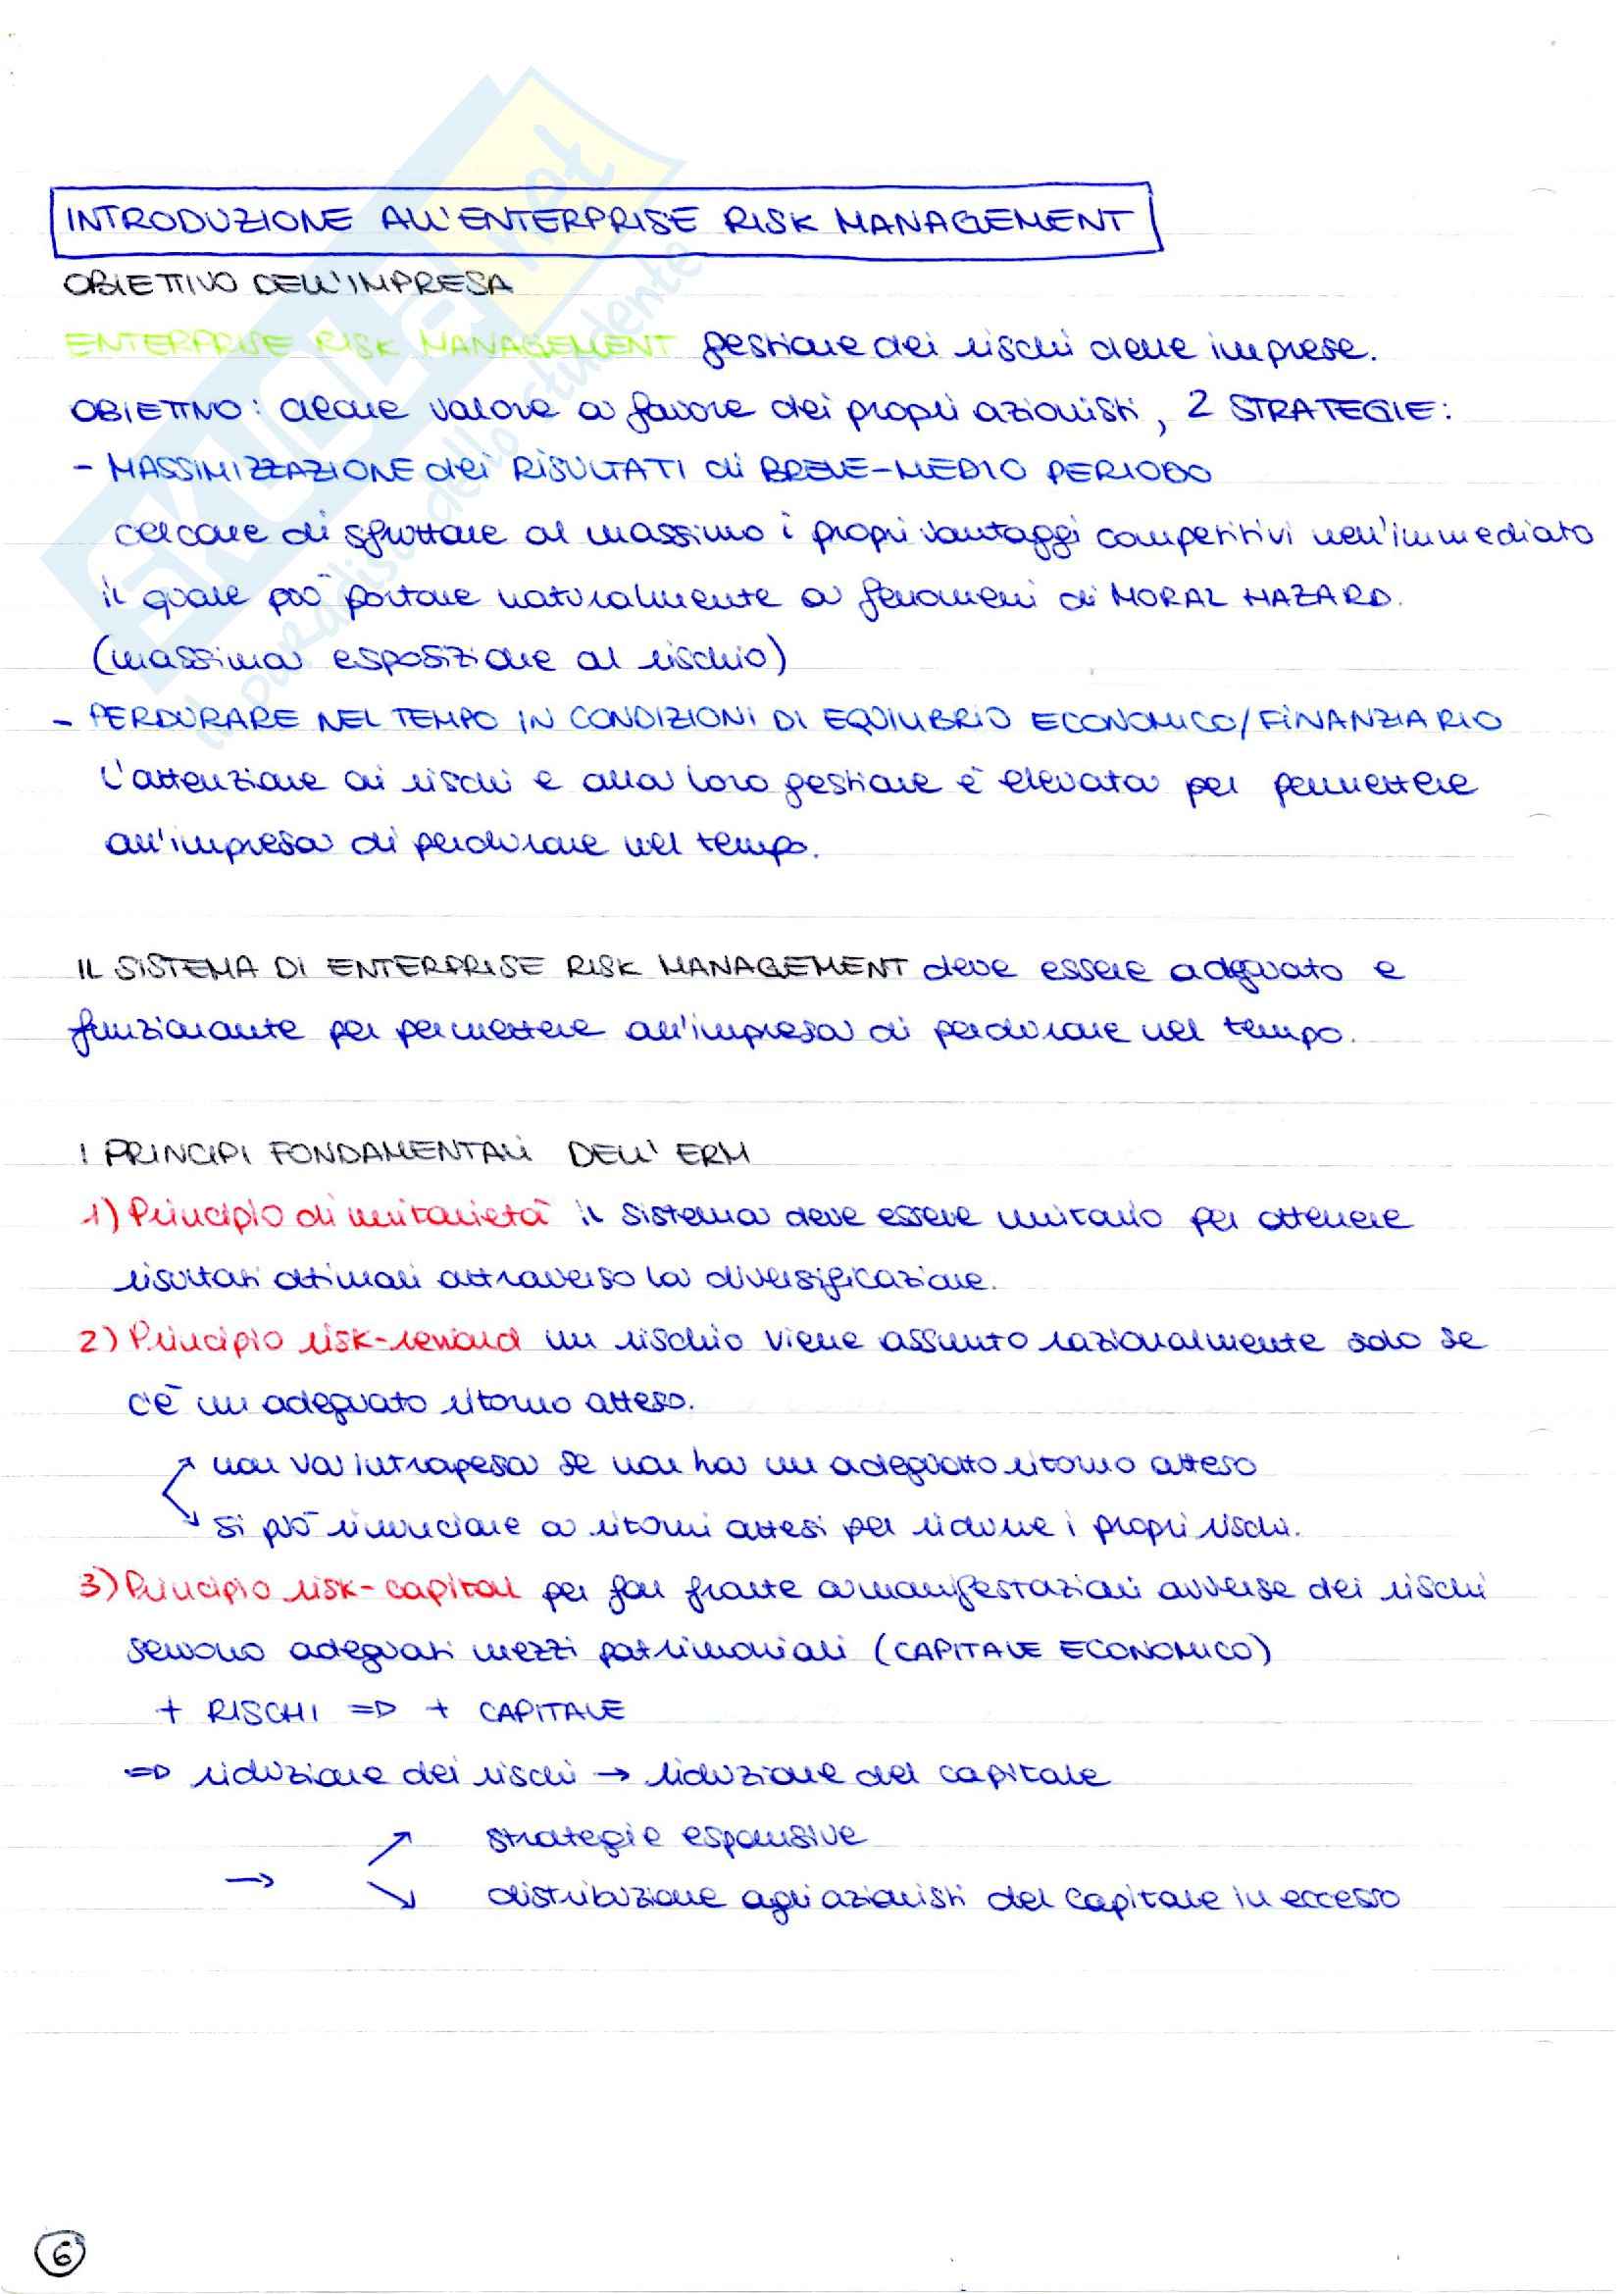 INTRODUZIONE ALL'ENTERPRISE RISK MANAGEMENT
OBIETTIVO DELL'IMPRESA
ENTERPRISE RISK MANAGEMENT gestione dei rischi delle imprese.
OBIETTIVO: creare valore a favore dei propri azionisti, 2 STRATEGIE:
- MASSIMIZZAZIONE dei RISULTATI di BREVE-MEDIO PERIODO
cercare di sfruttare al massimo i propri vantaggi competitivi nell'immediato
il quale può portare naturalmente a fenomeni di MORAL HAZARD.
(massima esposizione al rischio)
- PERDURARE NEL TEMPO IN CONDIZIONI DI EQUILIBRIO ECONOMICO/FINANZIARIO
L'attenzione ai rischi e alla loro gestione è elevata per permettere
all'impresa di perdurare nel tempo.
IL SISTEMA DI ENTERPRISE RISK MANAGEMENT deve essere adeguato e
funzionante per permettere all'impresa di perdurare nel tempo.
I PRINCIPI FONDAMENTALI DELL' ERM
1) Principio di unitarietà il sistema deve essere unitario per ottenere
risultati ottimali attraverso la diversificazione.
2) Principio risk-reward un rischio viene assunto razionalmente solo se
c'è un adeguato ritorno atteso.
non va intrapesa se non ha un adeguatto ritorno atteso
si può rinunciare a ritorni attesi per ridurre i propri rischi.
3) Principio risk-capital per far fronte a manifestazioni avverse dei rischi
servono adeguati mezzi patrimoniali (CAPITALE ECONOMICO)
+ RISCHI => + CAPITALE
=> riduzione dei rischi → riduzione del capitale
↗ strategie espansive
→
↘ distribuzione agli azionisti del capitale in eccesso
6
SKUOLA.net
il paradiso dello studente